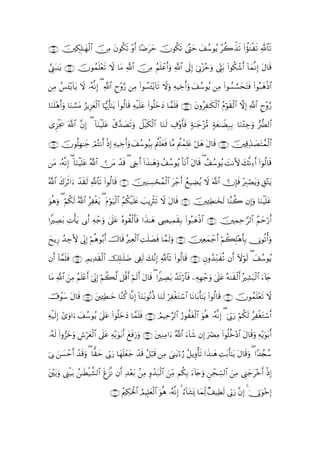 تَٱللَّهِ تَفْتَؤُا۟ تَذْكُرُ يُوسُفَ حَتَّىٰ تَكُونَ حَرَضًا أَوْ تَكُونَ مِنَ ٱلْهَـٰلِكِينَ ۝
قَالَ إِنَّمَآ أَشْكُوا۟ بَثِّى وَحُزْنِىٓ إِلَى ٱللَّهِ وَأَعْلَمُ مِنَ ٱللَّهِ مَا لَا تَعْلَمُونَ ۝ يَـٰبَنِىَّ
ٱذْهَبُوا۟ فَتَحَسَّسُوا۟ مِن يُوسُفَ وَأَخِيهِ وَلَا تَا۟يْـَٔسُوا۟ مِن رَّوْحِ ٱللَّهِ ۖ إِنَّهُۥ لَا يَا۟يْـَٔسُ مِن
رَّوْحِ ٱللَّهِ إِلَّا ٱلْقَوْمُ ٱلْكَـٰفِرُونَ ۝ فَلَمَّا دَخَلُوا۟ عَلَيْهِ قَالُوا۟ يَـٰٓأَيُّهَا ٱلْعَزِيزُ مَسَّنَا وَأَهْلَنَا
ٱلضُّرُّ وَجِئْنَا بِبِضَـٰعَةٍ مُّزْجَىٰةٍ فَأَوْفِ لَنَا ٱلْكَيْلَ وَتَصَدَّقْ عَلَيْنَآ ۖ إِنَّ ٱللَّهَ يَجْزِى
ٱلْمُتَصَدِّقِينَ ۝ قَالَ هَلْ عَلِمْتُم مَّا فَعَلْتُم بِيُوسُفَ وَأَخِيهِ إِذْ أَنتُمْ جَـٰهِلُونَ ۝
قَالُوٓا۟ أَءِنَّكَ لَأَنتَ يُوسُفُ ۖ قَالَ أَنَا۠ يُوسُفُ وَهَـٰذَآ أَخِى ۖ قَدْ مَنَّ ٱللَّهُ عَلَيْنَآ ۖ إِنَّهُۥ مَن
يَتَّقِ وَيَصْبِرْ فَإِنَّ ٱللَّهَ لَا يُضِيعُ أَجْرَ ٱلْمُحْسِنِينَ ۝ قَالُوا۟ تَٱللَّهِ لَقَدْ ءَاثَرَكَ ٱللَّهُ
عَلَيْنَا وَإِن كُنَّا لَخَـٰطِـِٔينَ ۝ قَالَ لَا تَثْرِيبَ عَلَيْكُمُ ٱلْيَوْمَ ۖ يَغْفِرُ ٱللَّهُ لَكُمْ ۖ وَهُوَ
أَرْحَمُ ٱلرَّٰحِمِينَ ۝ ٱذْهَبُوا۟ بِقَمِيصِى هَـٰذَا فَأَلْقُوهُ عَلَىٰ وَجْهِ أَبِى يَأْتِ بَصِيرًا
وَأْتُونِى بِأَهْلِكُمْ أَجْمَعِينَ ۝ وَلَمَّا فَصَلَتِ ٱلْعِيرُ قَالَ أَبُوهُمْ إِنِّى لَأَجِدُ رِيحَ
يُوسُفَ ۖ لَوْلَآ أَن تُفَنِّدُونِ ۝ قَالُوا۟ تَٱللَّهِ إِنَّكَ لَفِى ضَلَـٰلِكَ ٱلْقَدِيمِ ۝ فَلَمَّآ أَن
جَآءَ ٱلْبَشِيرُ أَلْقَىٰهُ عَلَىٰ وَجْهِهِۦ فَٱرْتَدَّ بَصِيرًا ۖ قَالَ أَلَمْ أَقُل لَّكُمْ إِنِّىٓ أَعْلَمُ مِنَ ٱللَّهِ مَا
لَا تَعْلَمُونَ ۝ قَالُوا۟ يَـٰٓأَبَانَا ٱسْتَغْفِرْ لَنَا ذُنُوبَنَآ إِنَّا كُنَّا خَـٰطِـِٔينَ ۝ قَالَ سَوْفَ
أَسْتَغْفِرُ لَكُمْ رَبِّىٓ ۖ إِنَّهُۥ هُوَ ٱلْغَفُورُ ٱلرَّحِيمُ ۝ فَلَمَّا دَخَلُوا۟ عَلَىٰ يُوسُفَ ءَاوَىٰٓ إِلَيْهِ
أَبَوَيْهِ وَقَالَ ٱدْخُلُوا۟ مِصْرَ إِن شَآءَ ٱللَّهُ ءَامِنِينَ ۝ وَرَفَعَ أَبَوَيْهِ عَلَى ٱلْعَرْشِ وَخَرُّوا۟ لَهُۥ
سُجَّدًا ۖ وَقَالَ يَـٰٓأَبَتِ هَـٰذَا تَأْوِيلُ رُءْيَـٰىَ مِن قَبْلُ قَدْ جَعَلَهَا رَبِّى حَقًّا ۖ وَقَدْ أَحْسَنَ بِىٓ
إِذْ أَخْرَجَنِى مِنَ ٱلسِّجْنِ وَجَآءَ بِكُم مِّنَ ٱلْبَدْوِ مِنۢ بَعْدِ أَن نَّزَغَ ٱلشَّيْطَـٰنُ بَيْنِى وَبَيْنَ
إِخْوَتِىٓ ۚ إِنَّ رَبِّى لَطِيفٌ لِّمَا يَشَآءُ ۚ إِنَّهُۥ هُوَ ٱلْعَلِيمُ ٱلْحَكِيمُ ۝